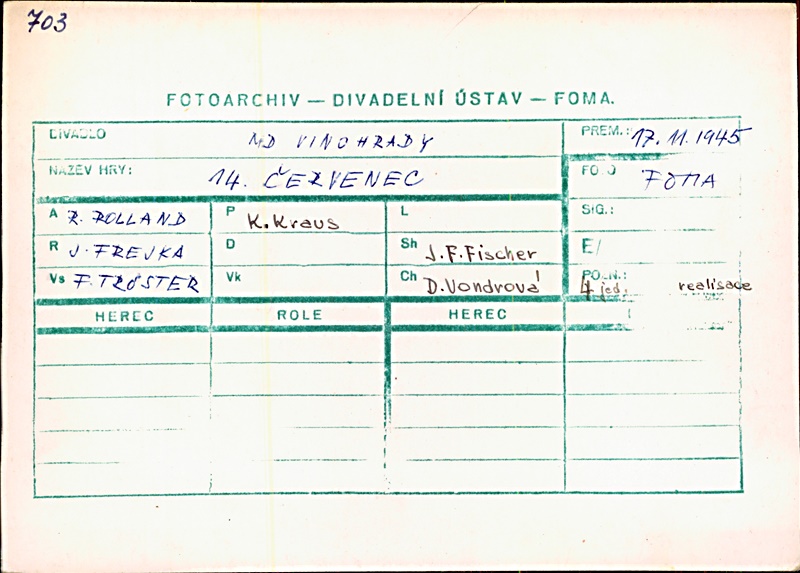 703
FOTOARCHIV — DIVADELNÍ ÚSTAV — FOMA.
DIVADLO MD VINOHRADY PREM.: 17.11.1945
NÁZEV HRY: 14. ČERVENEC FOTO FOMA
A R. ROLLAND P K. Kraus L SIG.:
R J. FREJKA D Sh J.F. Fischer E/
Vs F. TRÖSTER Vk Ch D. Vondrová POLN.: 4 jed. realisace
HEREC ROLE HEREC